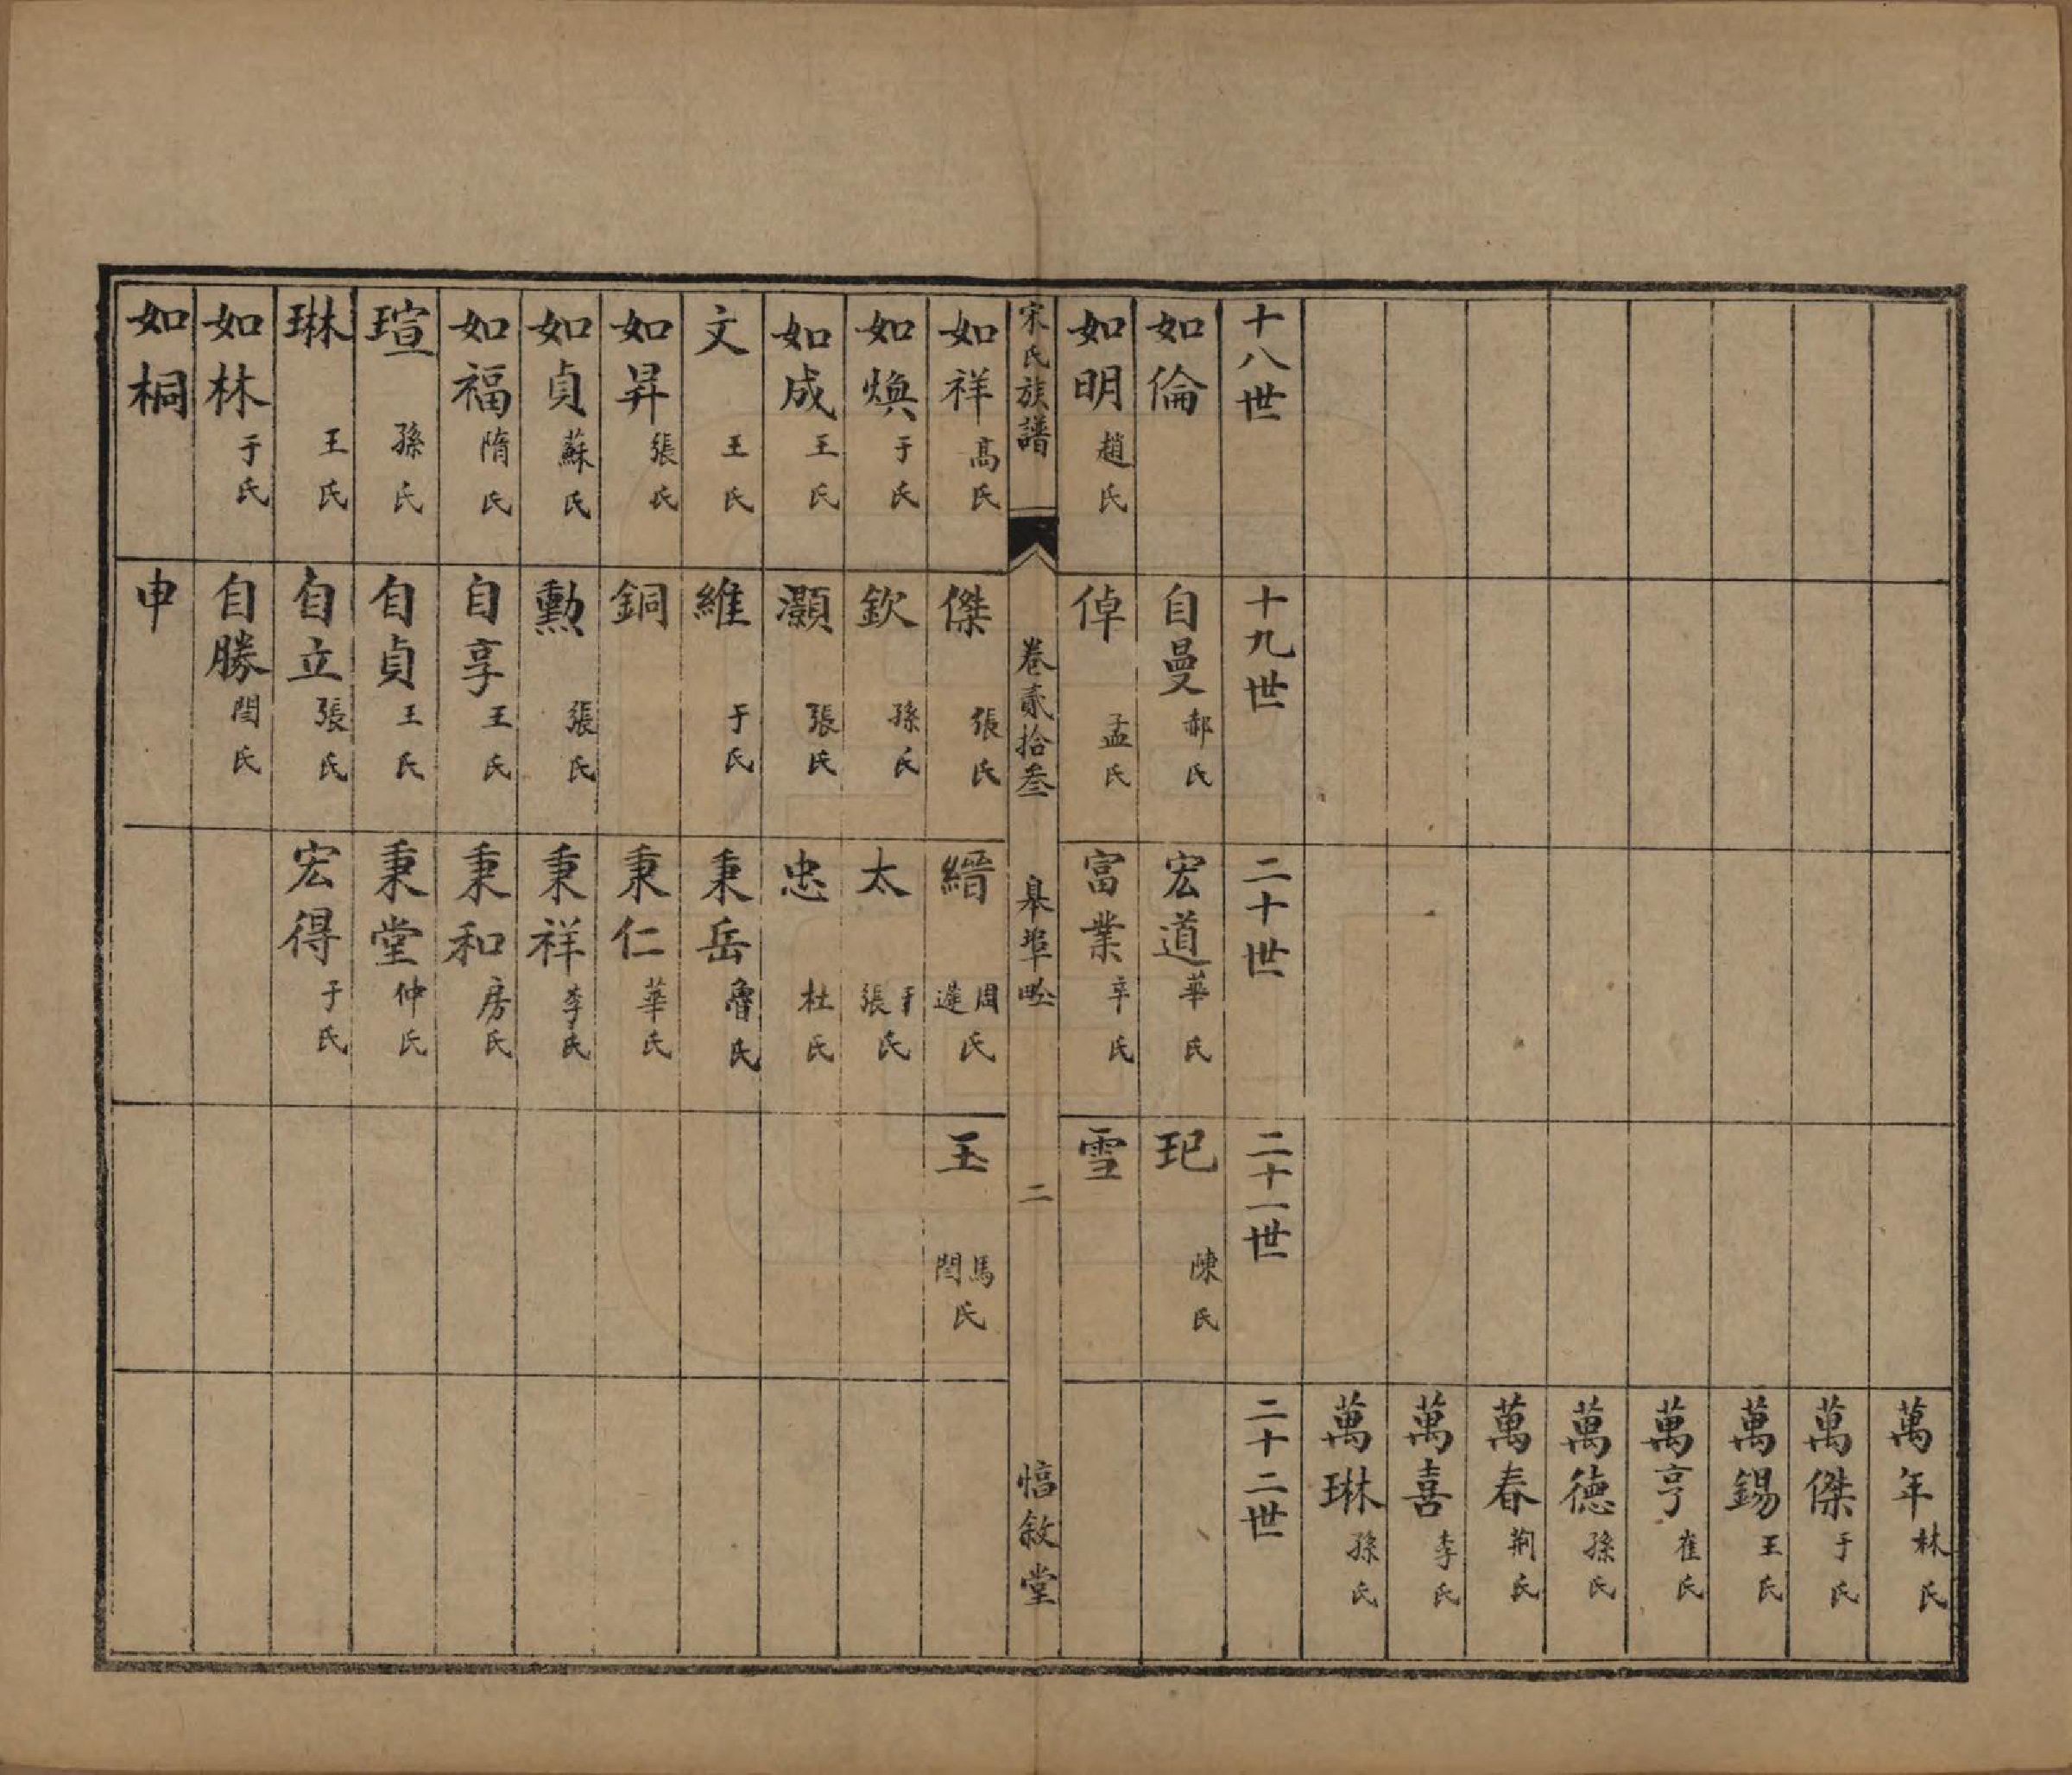 萬年 林氏
萬傑 于氏
萬錫 王氏
萬亨 崔氏
萬德 孫氏
萬春 荊氏
萬喜 李氏
萬琳 孫氏
十八世
十九世
二十世
二十一世
二十二世
如倫
自曼 郝氏
宏道 華氏
玘 陳氏
如明 趙氏
倬 孟氏
富業 辛氏
雪
宋氏族譜
卷貳拾叁
皋埠
二
惇敘堂
如祥 高氏
傑 張氏
縉 周 氏
玉 馬閆氏
如煥 于氏
欽 孫氏
太 于張氏
如成 王氏
灝 張氏
忠 杜氏
文 王氏
維 于氏
秉岳 魯氏
如昇 張氏
銅
秉仁 華氏
如貞 蘇氏
勳 張氏
秉祥 李氏
如福 隋氏
自享 王氏
秉和 房氏
瑄 孫氏
自貞 王氏
秉堂 仲氏
琳 王氏
自立 張氏
宏得 于氏
如林 于氏
自勝 閆氏
如桐
申